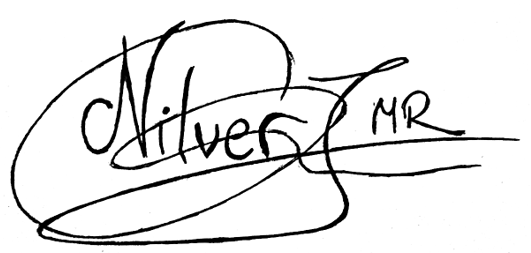 Nilver MR